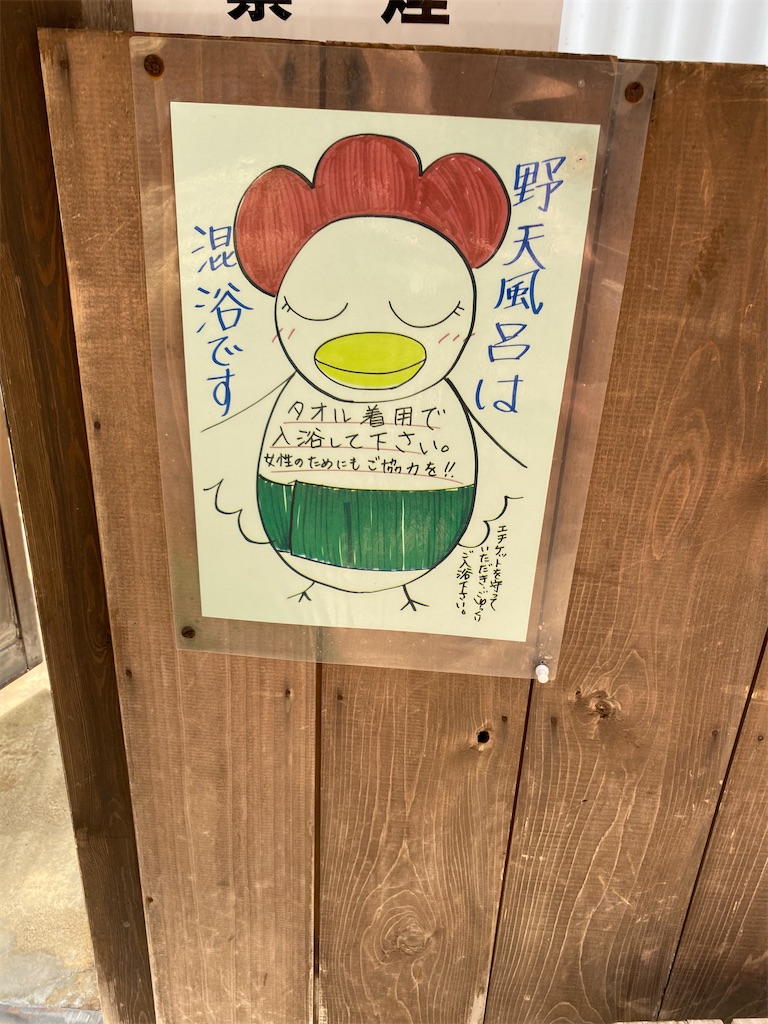 禁煙
野天風呂は
混浴です
タオル着用で
入浴して下さい。
女性のためにもご協力を!!
エチケットを守って
いただき、ごゆっくり
ご入浴下さい。